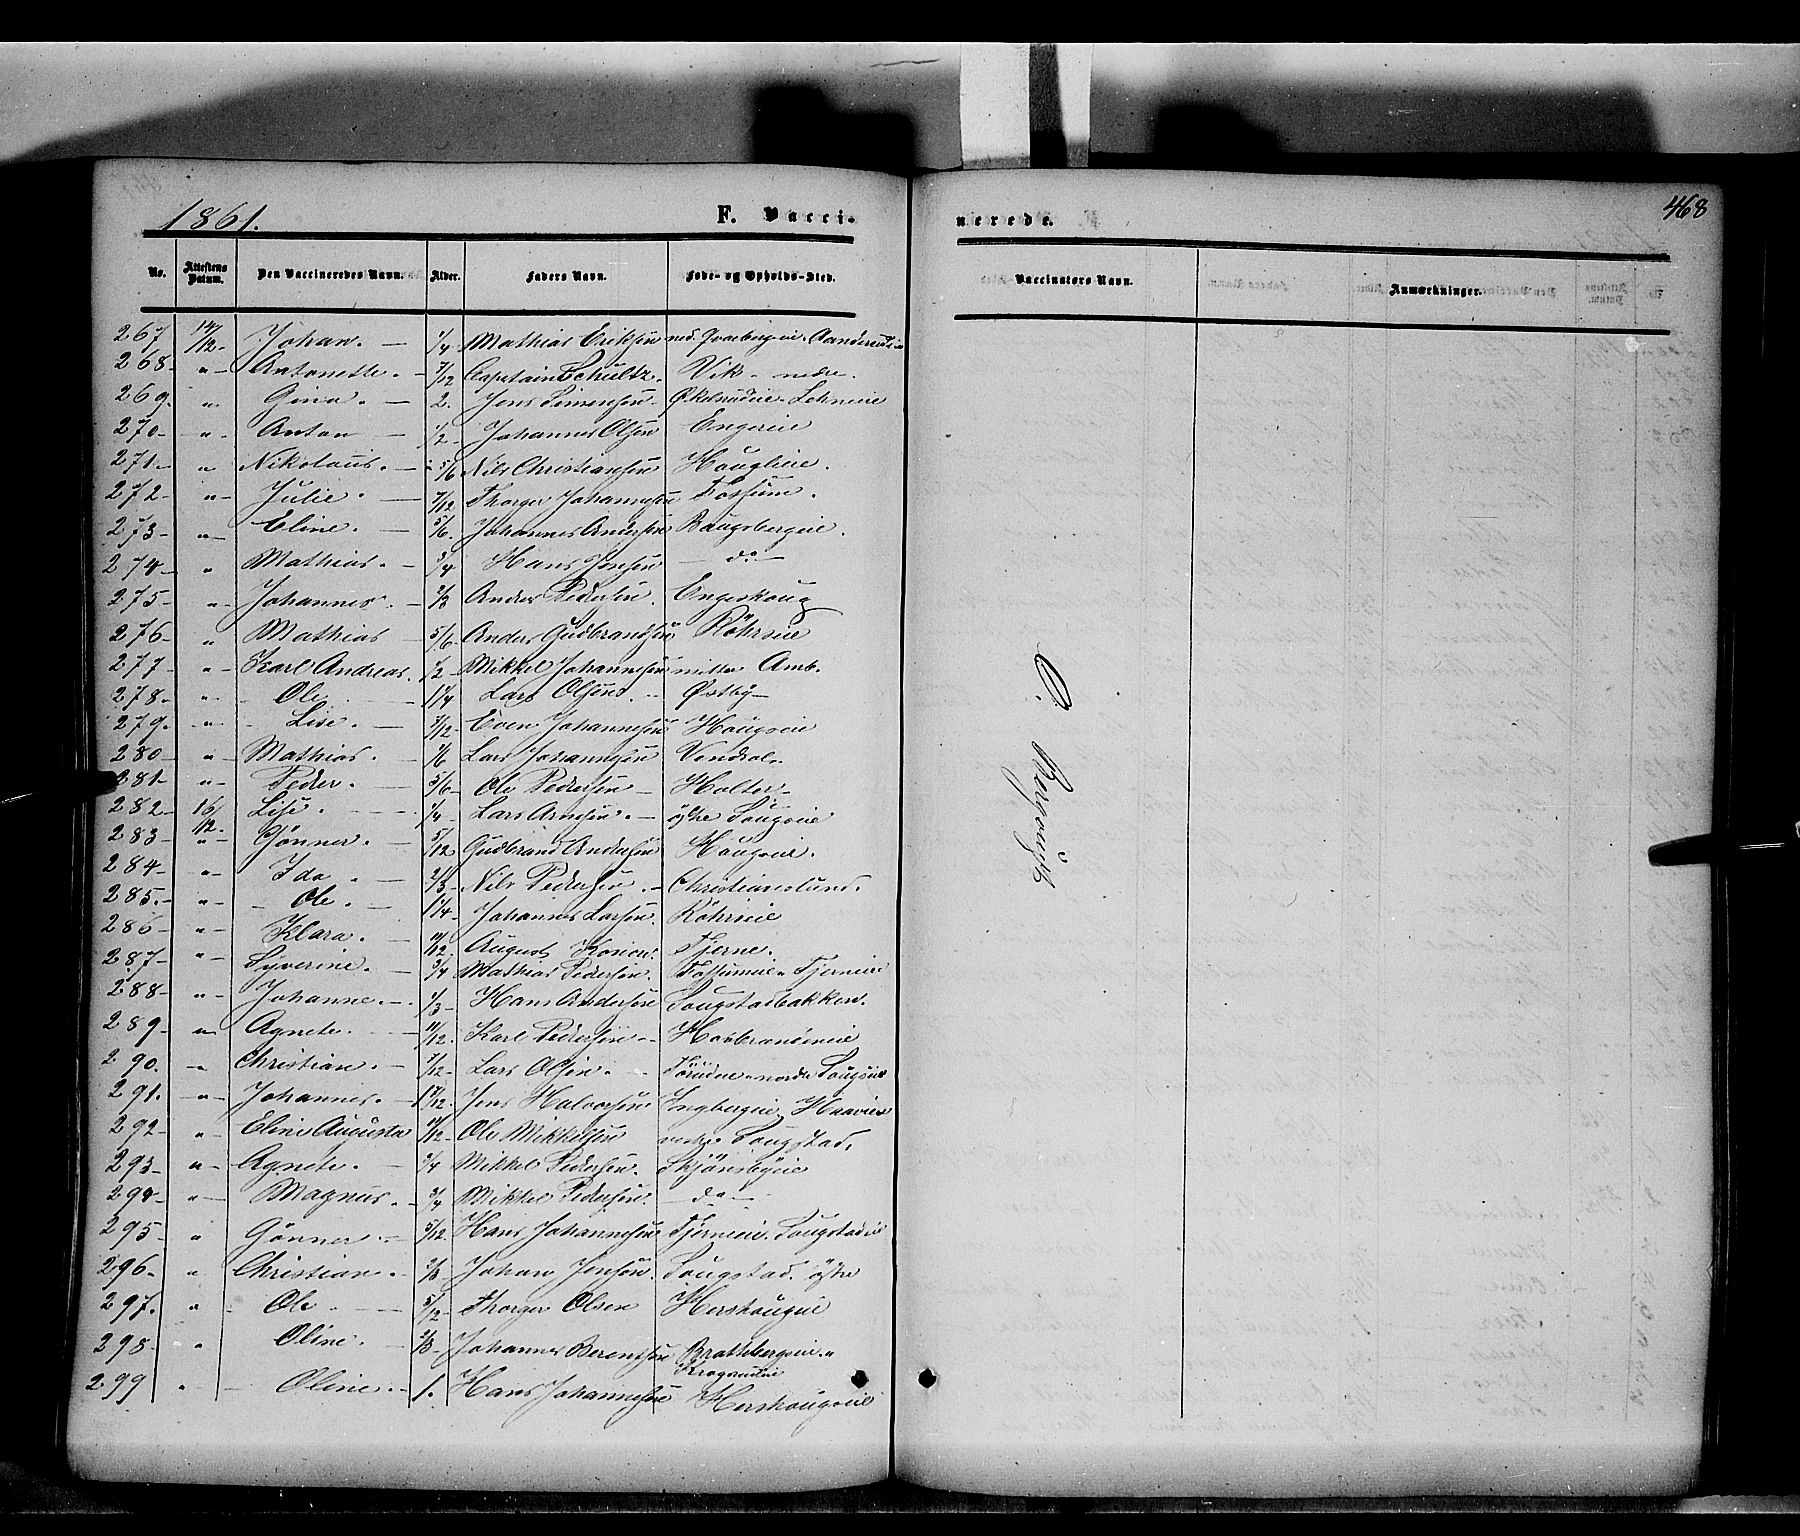 1861.
F. Vacci-
nerede.
468
No. Attestens Datum. Den Vaccineredes Navn. Alder. Faders Navn. Føde- og Opholds-Sted.
Vaccinators Navn. Anmærkninger.
267 14/12- Johan. — 1/4 Mathias Eriksen
268- " - Antonette. - 7/12 Capitain Schultz. Vik - nedre.
269. " Gina. — 2. Jens Simensen-
270- " Anton — 1/2- Johannes Olsen Engeeie
271- " Nikolaus. - 5/6 Nils Christiansen Houglieie.
272- " - Julie. — 7/12 Thorger Johannesen Fossum.
273- " - Eline. — 5/6. Johannes Andersen Baugsbergeie.
274- " Mathias. - 3/4 Hans Jensen — do —
275- " - Johannes. - 2/3 Anders Pedersen. Engeskoug
276- " Mathias — 5/6- Anders Gudbrandsen Röhrseie
277- " - Karl Andreas. 1/2- Mikkel Johannesen mitte Amb.
278- " - Ole 1 1/4 Lars Olsens. " Østby-
279. " - Lise. — 7/12- Even Johannesen Hougseie
280- " - Mathias. - 1/6 Lars Johannesen Vendsol-
281- " - Peder. — 5/6- Ole Pedersen - Holter-
282- 16/12- Lise. 1/4- Lars Arnesen. - östre Sougseie
283- " - Gønner. — 5/12 Gudbrand Andersen Hougseie.
284- " - Ida. — 2/3- Nils Pedersen. - Christianslund.
285. - " - Ole. — 1 1/4- Johannes Larsen. Röhrseie
286- " - Klara. — 11/12. August Tjerne.
287- " - Syverine. - 3/4 Mathias Pedersen. Fossumeie " Tjerneie
288- " - Johanne. - 1/3- Hans Andersen Sougstadbakken.
289- " Agnete. — 11/12. Karl Pedersen - Horbrandseie
290. " Christian. - 7/12- Lars Olsen. - nordre Sougseie
291. " - Johannes. - 1 7/12. Jens Halvorsen Ingbergeie
292- " - Eline Augusta 11/12- Ole Mikkelsen vestre Sougstad.
293- " - Agnete. — 3/4 Mikkel Pedersen. Skjønsbyeie
294- " - Magnus. - 3/4 Mikkel Pedersen. — do —
295- " Gønner. - 5/12 Hans Johannesen Tjerneie. Sougstadeie
296- " Christian. - 2/3- Johan Jensen. Sougstad. östre
297. " - Ole — 5/12- Thorger Olsen Hershougeie
298- " Oline. 2/3- Johannes Berentsen Brattbergeie "
Krogsrudeie
299 " - Oline. - 1. Hans Johannesen Hershougseie